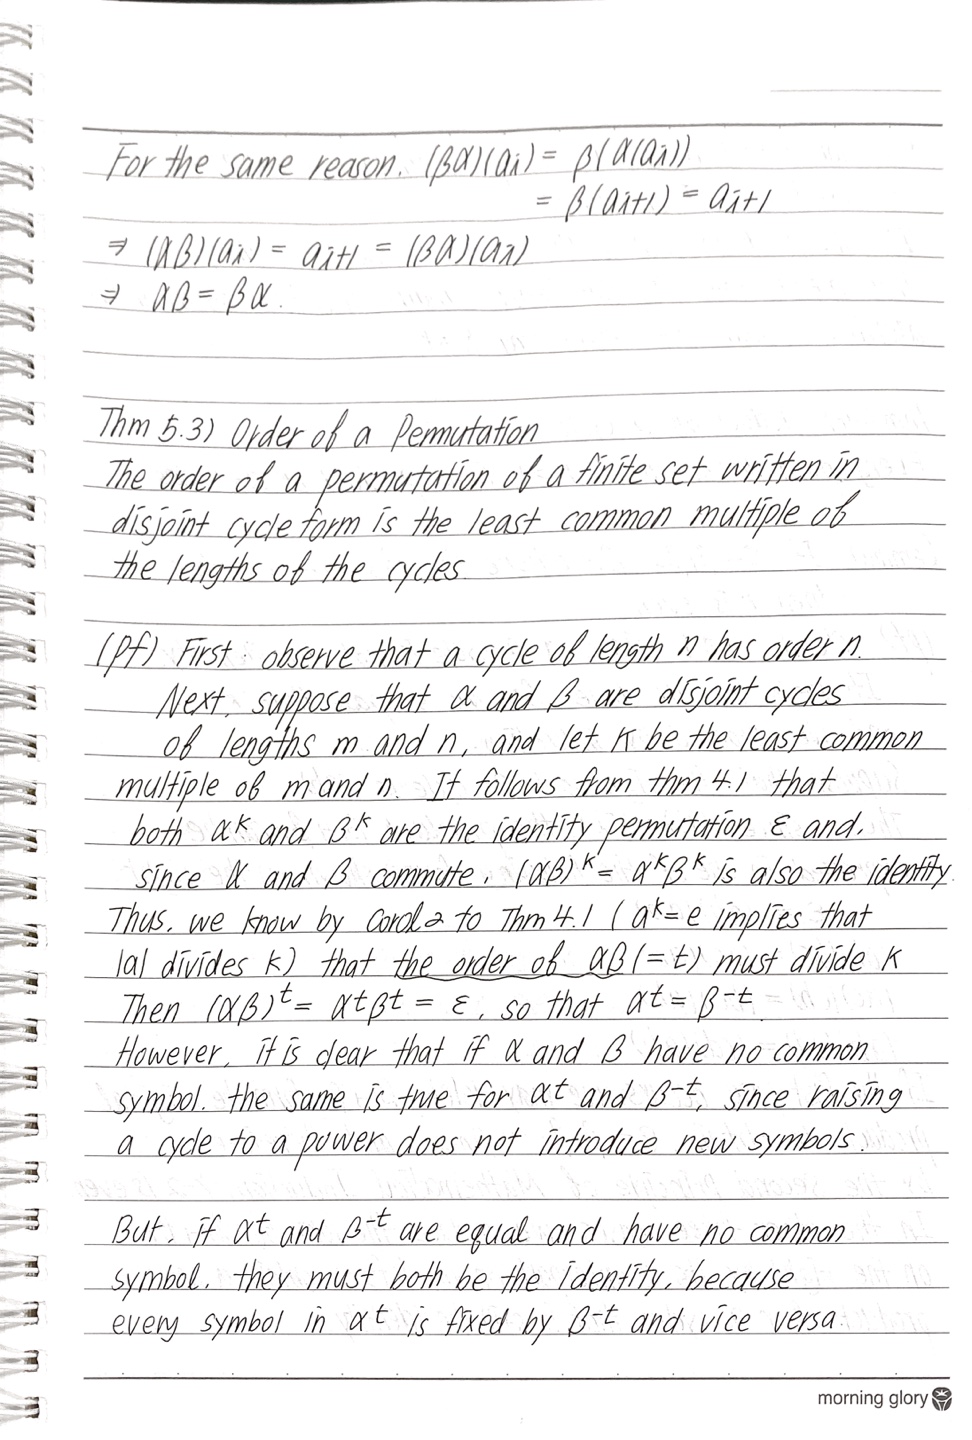 For the same reason. (βα)(aᵢ) = β(α(aᵢ))
= β(aᵢ₊₁) = aᵢ₊₁
⇒ (αβ)(aᵢ) = aᵢ₊₁ = (βα)(aᵢ)
⇒ αβ = βα.
Thm 5.3) Order of a Permutation
The order of a permutation of a finite set written in
disjoint cycle form is the least common multiple of
the lengths of the cycles.
(pf) First, observe that a cycle of length n has order n.
Next, suppose that α and β are disjoint cycles
of lengths m and n, and let K be the least common
multiple of m and n. It follows from thm 4.1 that
both αᵏ and βᵏ are the identity permutation ε and,
since α and β commute, (αβ)ᵏ = αᵏβᵏ is also the identity.
Thus, we know by Corol 2 to Thm 4.1 (aᵏ = e implies that
|a| divides K) that the order of αβ(=t) must divide K
Then (αβ)ᵗ = αᵗβᵗ = ε, so that αt = β⁻ᵗ.
However, it is clear that if α and β have no common
symbol, the same is true for αt and β⁻ᵗ, since raising
a cycle to a power does not introduce new symbols.
But, if αt and β⁻ᵗ are equal and have no common
symbol, they must both be the identity, because
every symbol in αt is fixed by β⁻ᵗ and vice versa.
morning glory